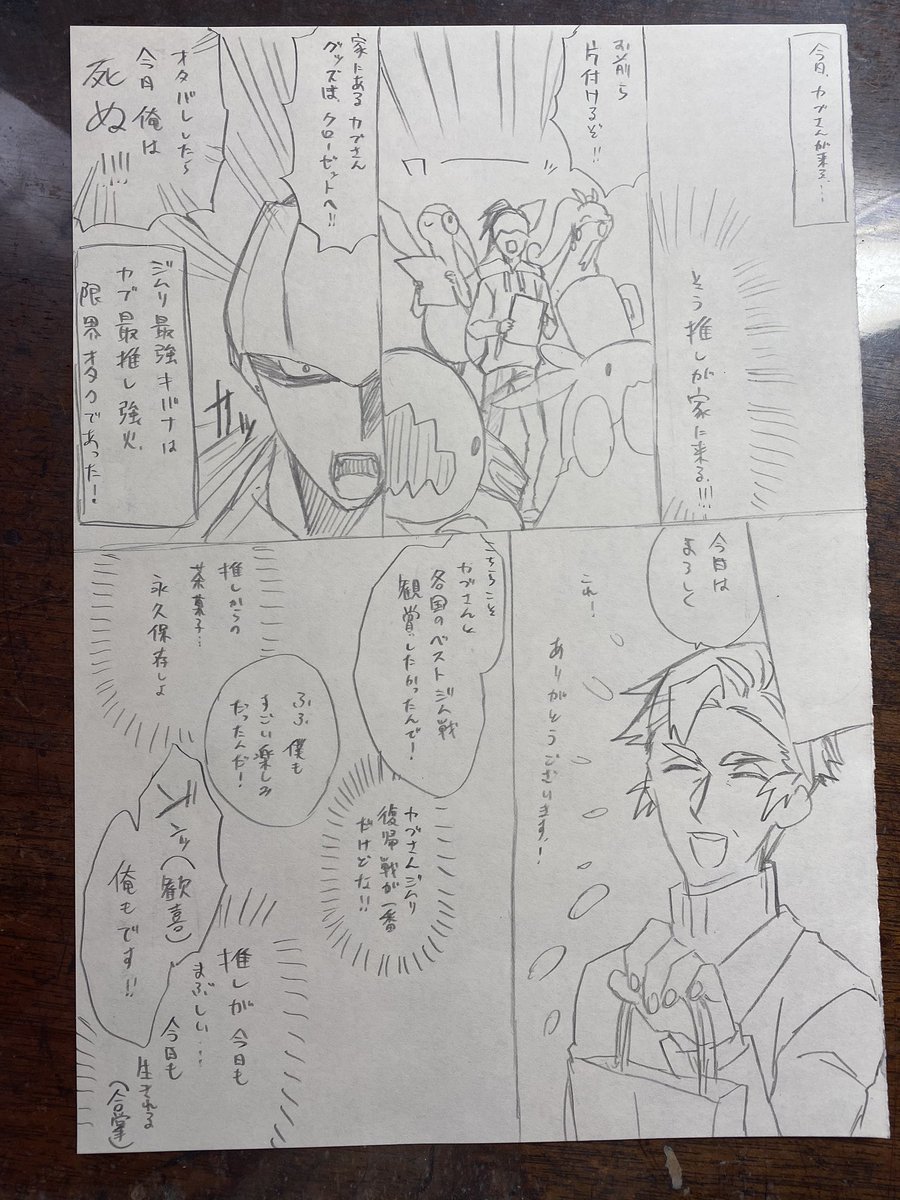 今日、カブさんが来る…
そう推しが家に来る!!!
お前ら
片付けるぞ!!
家にあるカブさん
グッズは、クローゼットへ!!
オタバレしたら
今日俺は
死ぬ!!!
カッ
ジムリ最強キバナは
カブ最推し強火
限界オタクであった!
今日は
よろしく
これ!
ありがとうございます!
こちらこそ
カブさんと
各国のベストジム戦
観賞したかったんで!
カブさんジムリ
復帰戦が一番
だけどな!!
ふふ 僕も
すごい楽しみ
だったんだ!
推しからの
茶菓子…
永久保存しよ
(歓喜)
俺もです!!
推しが今日も
まぶしい…
今日も
生きれる
(合掌)